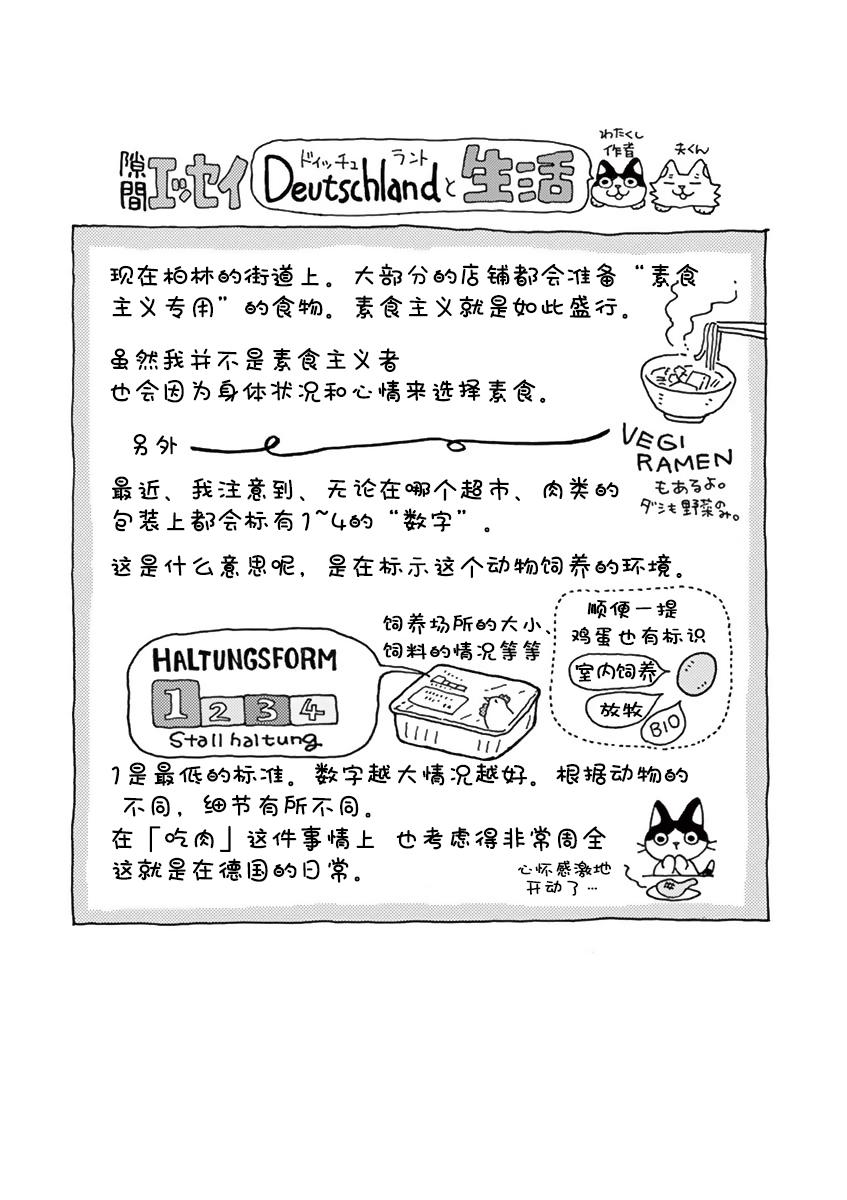 わたくし
作者
夫くん
隙間エッセイ
ドイッチュ ラント
Deutschlandと生活
现在柏林的街道上。大部分的店铺都会准备“素食
主义专用”的食物。素食主义就是如此盛行。
虽然我并不是素食主义者
也会因为身体状况和心情来选择素食。
VEGI
RAMEN
もあるよ。
ダシも野菜のみ。
另外
最近、我注意到、无论在哪个超市、肉类的
包装上都会标有1~4的“数字”。
这是什么意思呢，是在标示这个动物饲养的环境。
HALTUNGSFORM
1 2 3 4
Stallhaltung
饲养场所的大小、
饲料的情况等等
顺便一提
鸡蛋也有标识
室内饲养
放牧
BIO
1是最低的标准。数字越大情况越好。根据动物的
不同，细节有所不同。
在「吃肉」这件事情上 也考虑得非常周全
这就是在德国的日常。
心怀感激地
开动了…